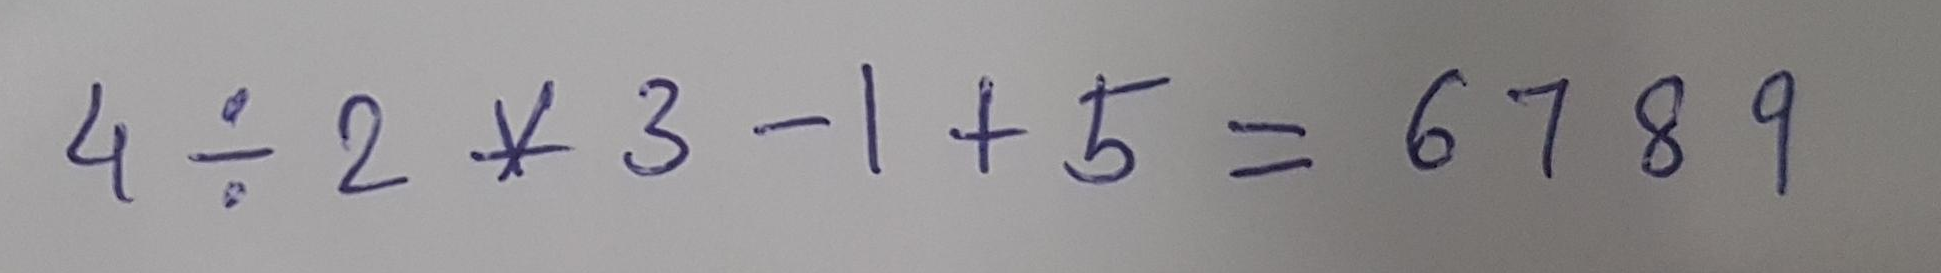 4 ÷ 2 * 3 - 1 + 5 = 6 7 8 9